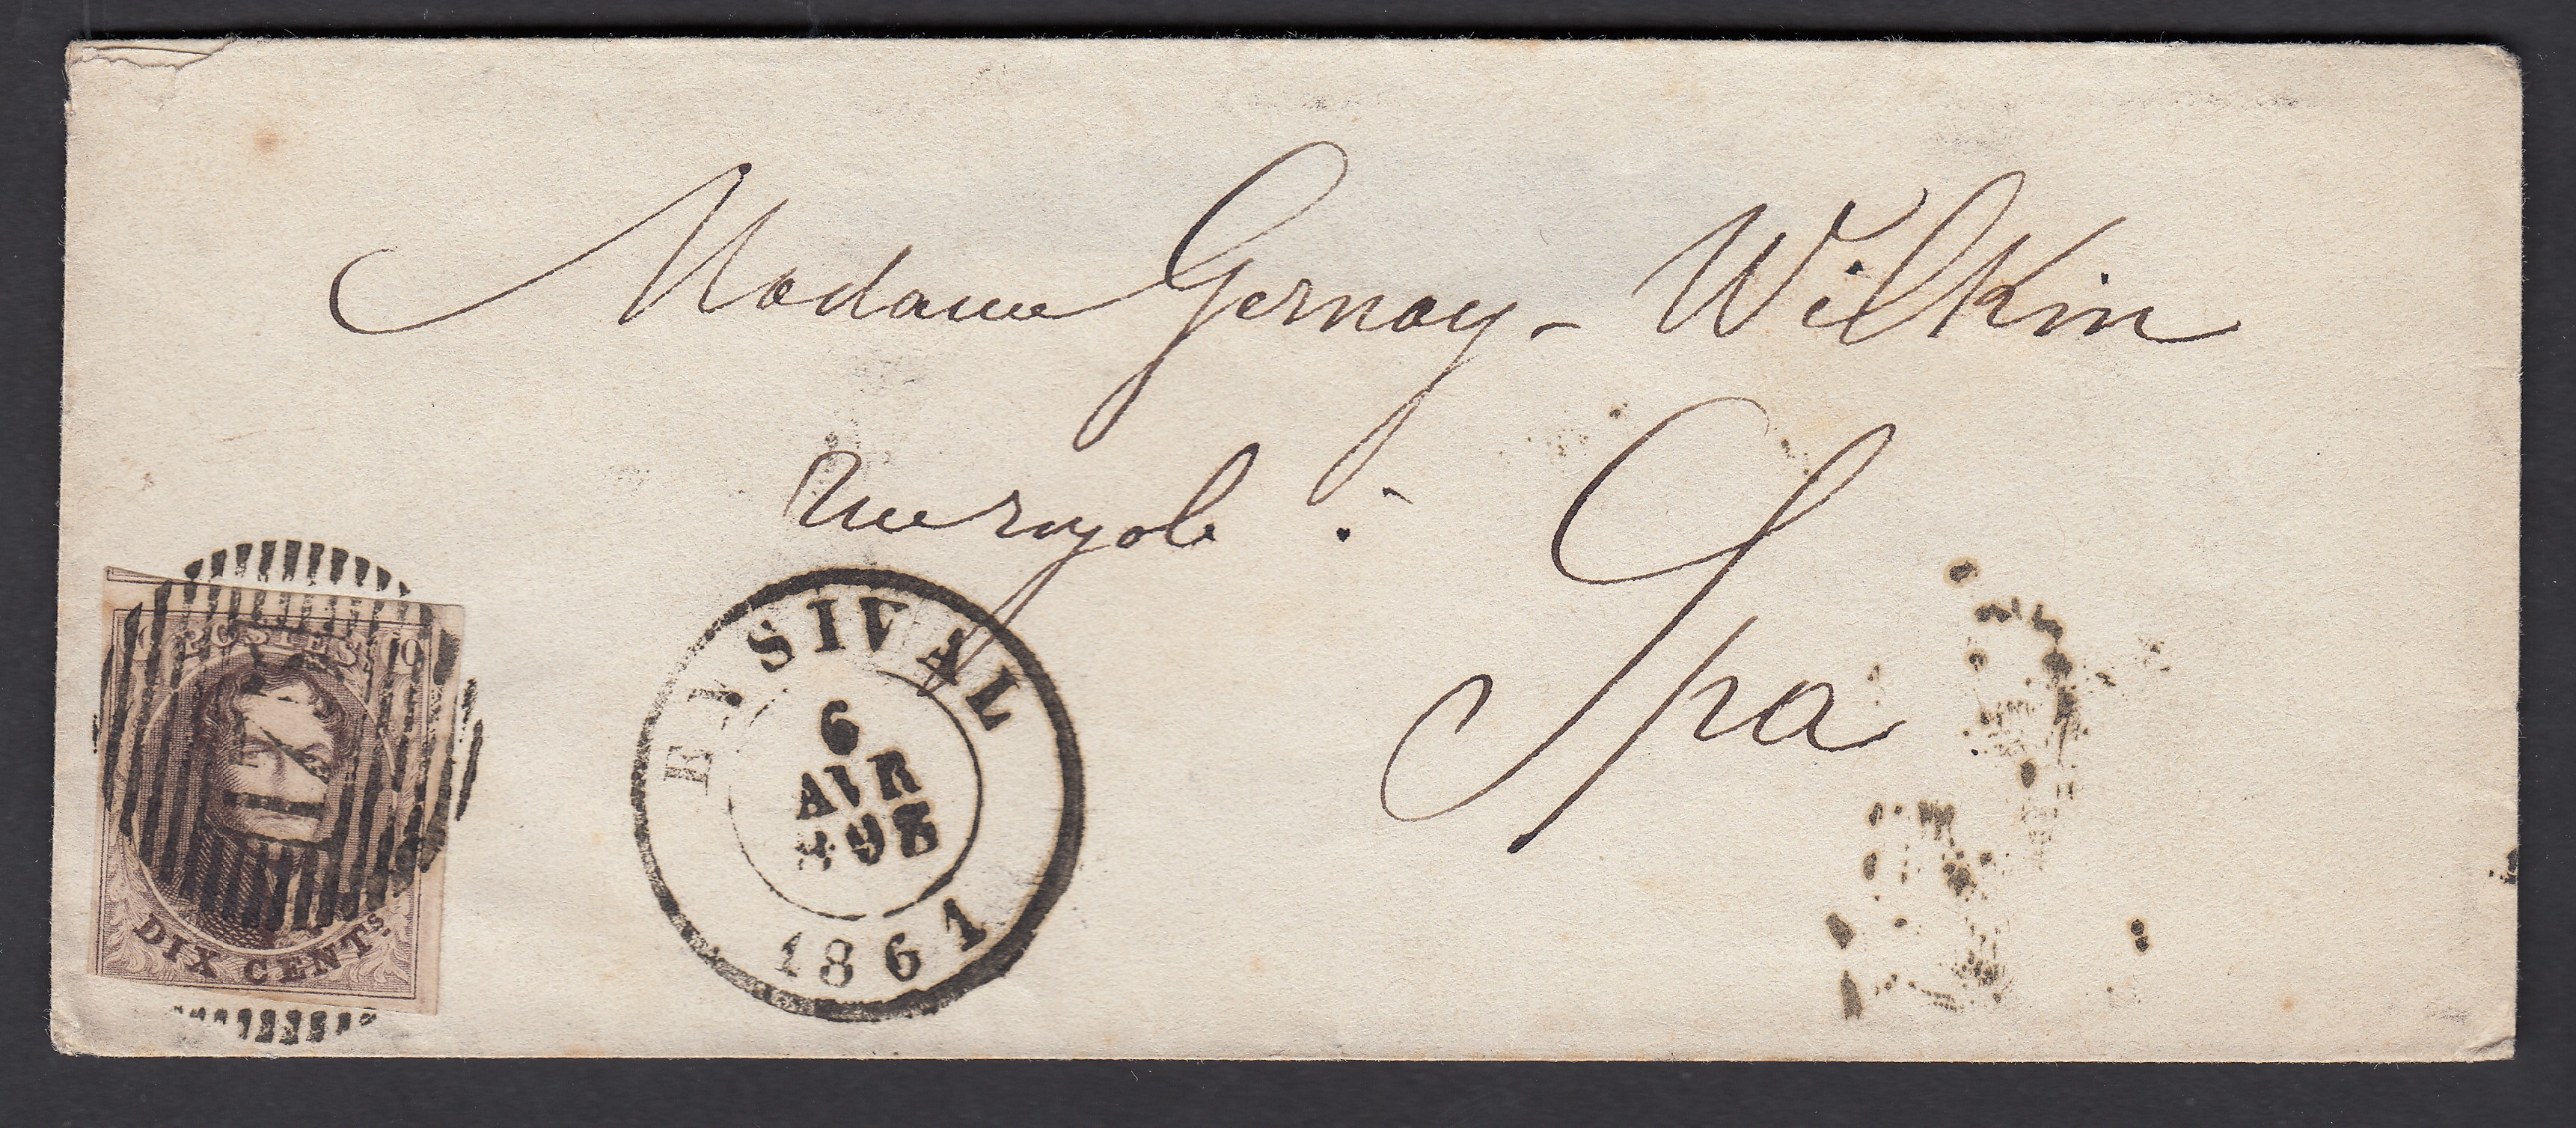 Madame Gernay-Wilkin
Rue royale :
Spa
POSTES. 10
DIX CENTS.
ENSIVAL
6
AVR
1861